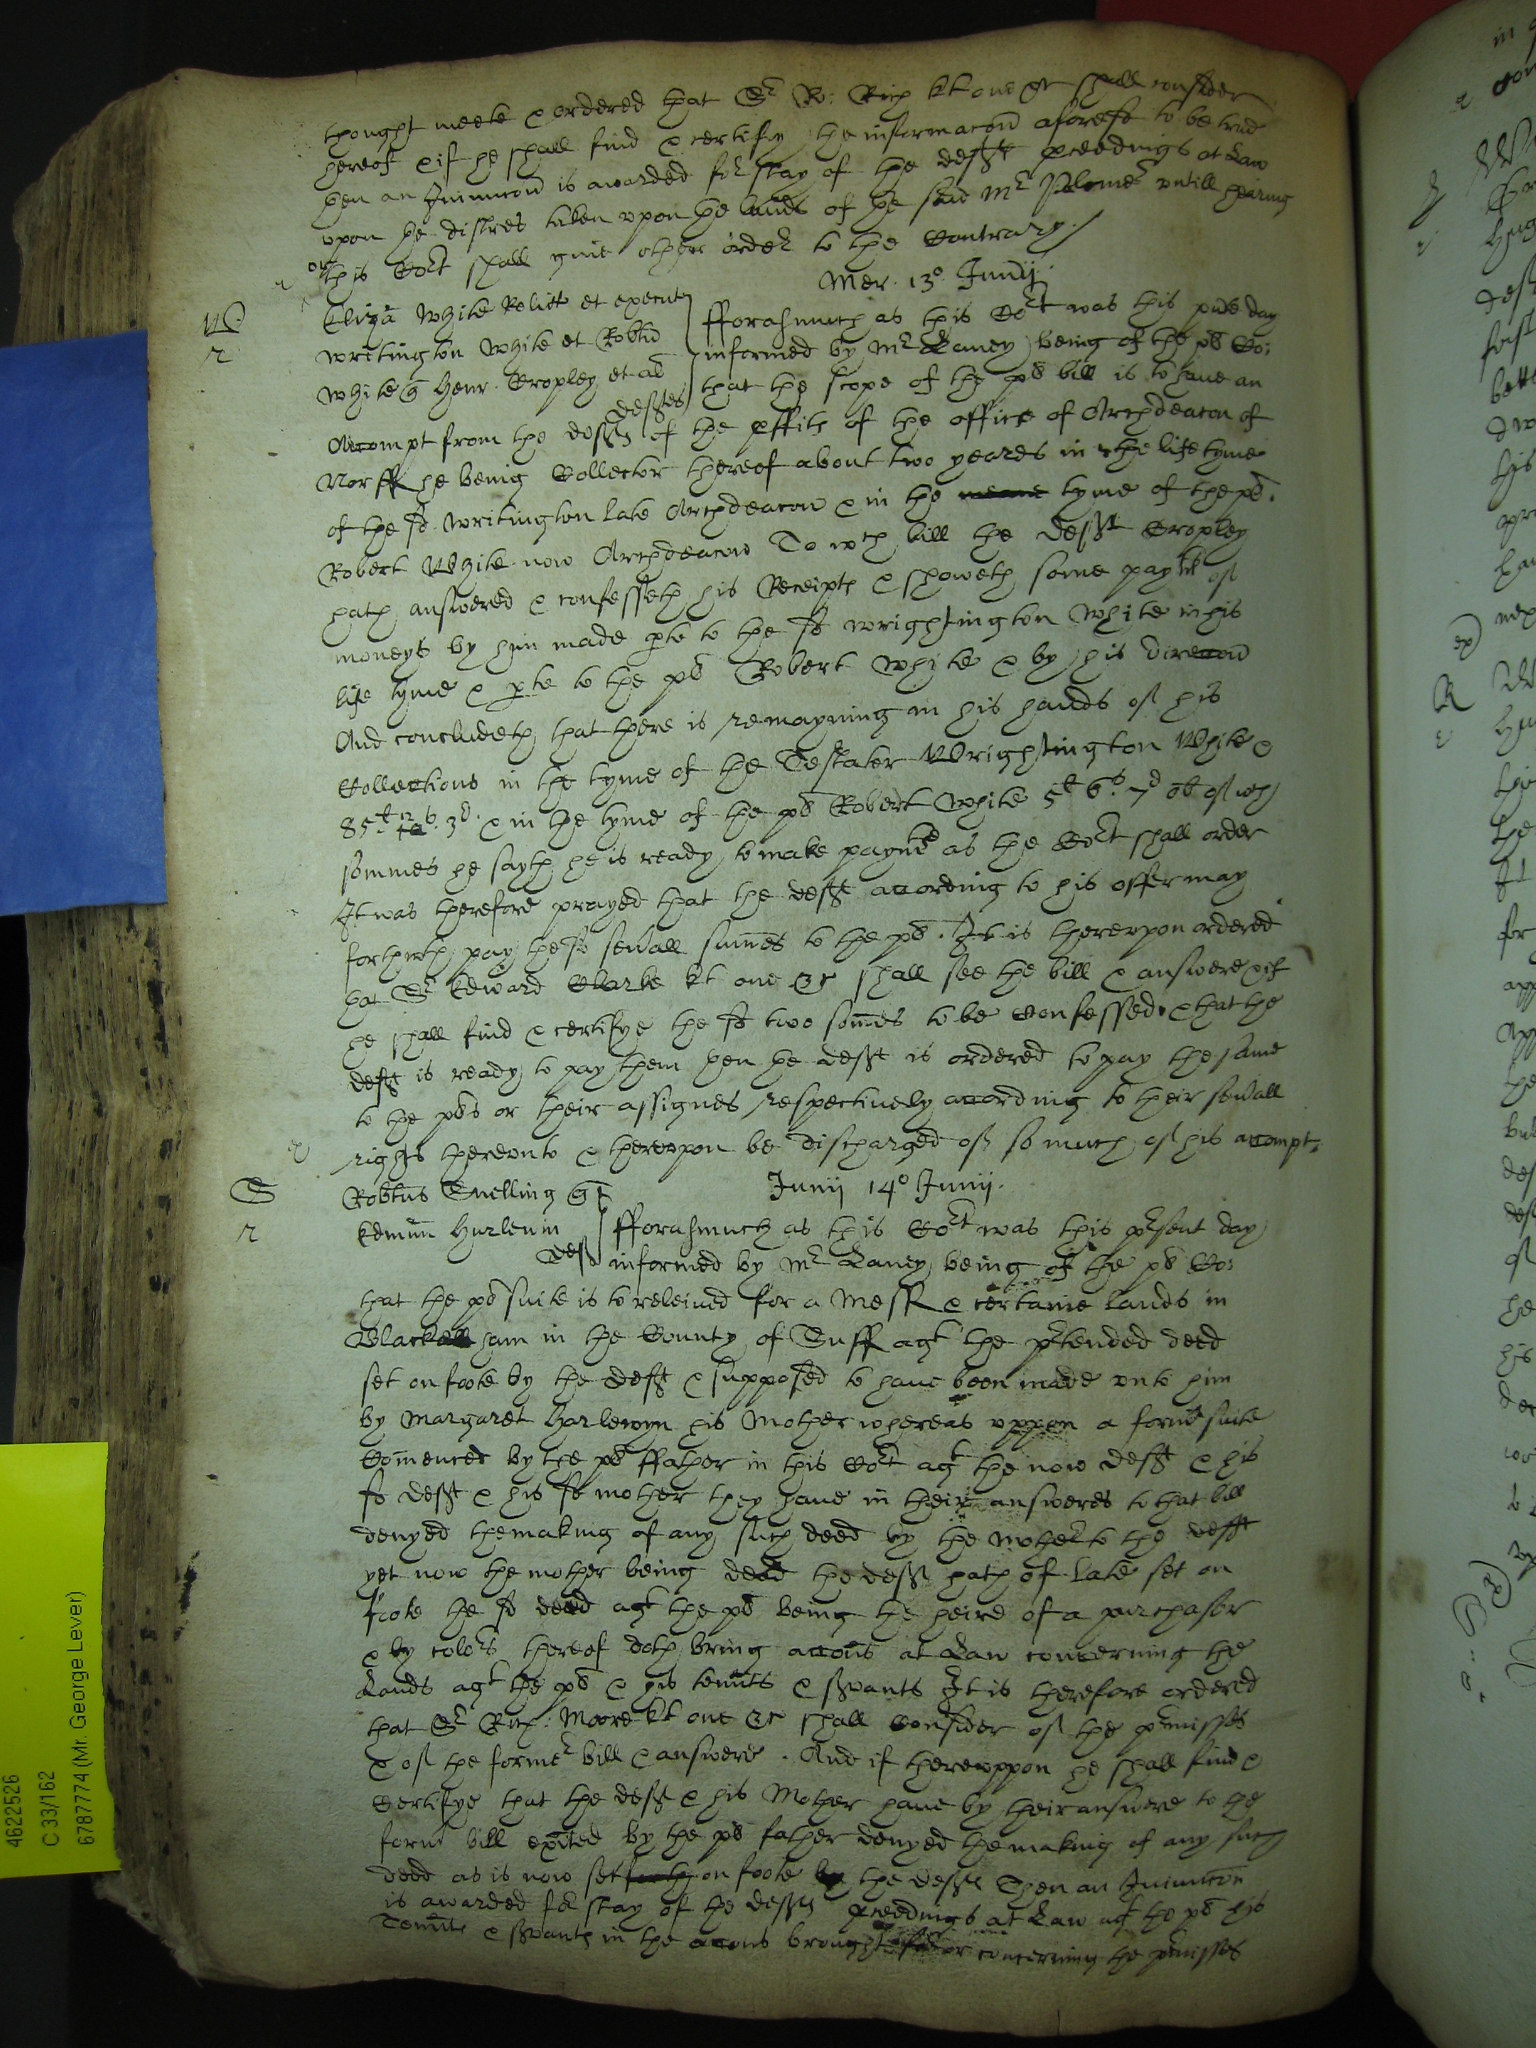 thought meete & ordered that Sr Ro: Rich kt one &c shall consider
hereof & if he shall find & certifiy the informacon aforesd to be true
then an Iniunccon is awarded for stay of the defts pceedings at Law
upon the distres taken upon the lands of the said Mr untill hearing
or this Cort shall give other order to the Contrary /
Mer. 13o Junij
Eliza White Relict et execut
Writington White et Robtus
White Henr. Cropley et al
deftes
fforasmuch as this Cort was this pnte day
informed by Mr Laney being of the pl Co:
that the scope of the pl bill is to have an
Accompt from the deft of the pffitts of the office of Archdeacon of
Norff he being Collector thereof about two yeares in the life tyme
of the sd Writington late Archdeacon & in the meane tyme of the pl.
Robert White now Archdeacon To wch bill the deft Cropley
hath answered & confesseth his Receipts & showeth some paymts of
moneys by him made pte to the sd Wrightington White in his
life tyme & pte to the pl Robert White & by his direccon
And concludeth that there is remayning in his hands of his
Collections in the tyme of the Testator Wrightington White
85l 12s 3d & in the tyme of the pl Robert White 5l 6s 7d ob of wch
sommes he sayth he is ready to make paymt as the Cort shall order
It was therefore prayed that the deft according to his offer may
forthwth pay the sd seuall summes to the pl. It is thereupon ordered
that Sr Edward Clarke kt one &c shall see the bill & answere & if
he shall find & certifye the sd two sommes to be Confessed & that the
deft is ready to pay them then the deft is ordered to pay the same
to the pls or their assignes respectively according to their seuall
rights thereunto & thereupon be discharged of so much of his accompt.
Junij 14o Junij.
Robtus Snelling
Edmun Hurlewin
deft
fforasmuch as this Cort was this prsent day
informed by Mr Laney being of the pl Co:
that the pl suite is to releived for a Mess & certaine lands in
Blackenham in the County of Suff agt the prtended deed
set on foote by the deft & supposed to haue been made unto him
by Margaret Harlewyn his Mother whereas uppon a former suite
Comenced by the pl ffather in this Cort agt the now deft & his
sd deft & his sd mother they haue in their answeres to that bill
denyed the making of any such deed by the Mother to the deft
yet now the mother being dead the deft hath of late set on
foote the sd deed agt the pl being the heire of a purchasor
& by colors thereof doth bring accons at Law concerning the
Lands agt the pl & his tennts & servants It is therefore ordered
that Sr Rich: Moore kt one &c shall Consider of the prmisses
& of the former bill & answere. And if thereuppon he shall find &
Certifye that the deft & his Mother haue by their answere to the
former bill exited by the pl father denyed the making of any such
deed as is now set forth on foote by the deft Then an Iniunccon
is awarded for stay of the defts pceedings at Law agt the pl his
Tennts & servants in the accons brought for or concerning the prmisses
4622526
C 33/162
6787774 (Mr. George Lever)